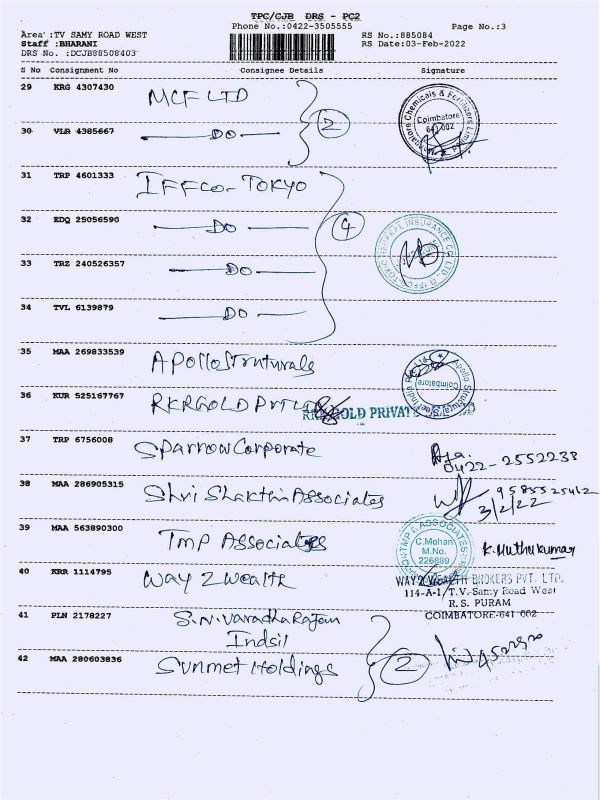 TPC/CJB DRS - PC2
Phone No.:0422-3505555
Page No.:3
Area :TV SAMY ROAD WEST
RS No.:885084
Staff :BHARANI
RS Date:03-Feb-2022
DRS No. :DCJB88508403
S No Consignment No Consignee Details Signature
29 KRG 4307430 MCF LTD
30 VLR 4385667 DO 2
Mangalore Chemicals & Fertilizers Limited
Coimbatore
641 002
31 TRP 4601333 IFFCO - TOKYO
32 EDQ 25056590 DO 4
33 TRZ 240526357 DO
34 TVL 6139879 DO
35 MAA 269833539 Apollo Struturals
Coimbatore
36 KUR 525167767 RKRGOLD PVT LTD
GOLD PRIVATE
37 TRP 6756008 Sparrow Corporate
0422-2552238
38 MAA 286905315 Shri Shakthi Associates
9585525412
3/2/22
39 MAA 563890300 TMP Associates
TMP & ASSOCIATES
C.Mohan
M.No.
226889
K.Muthukumar
40 KRR 1114795 Way 2 Wealth
WAY2WEALTH BROKERS PVT. LTD.
114-A-1, T.V. Samy Road West
R.S. PURAM
COIMBATORE-641 002
41 PLN 2178227 S.N. Varadha Rajan
Indsil
42 MAA 280603836 Sunmet Holdings 2